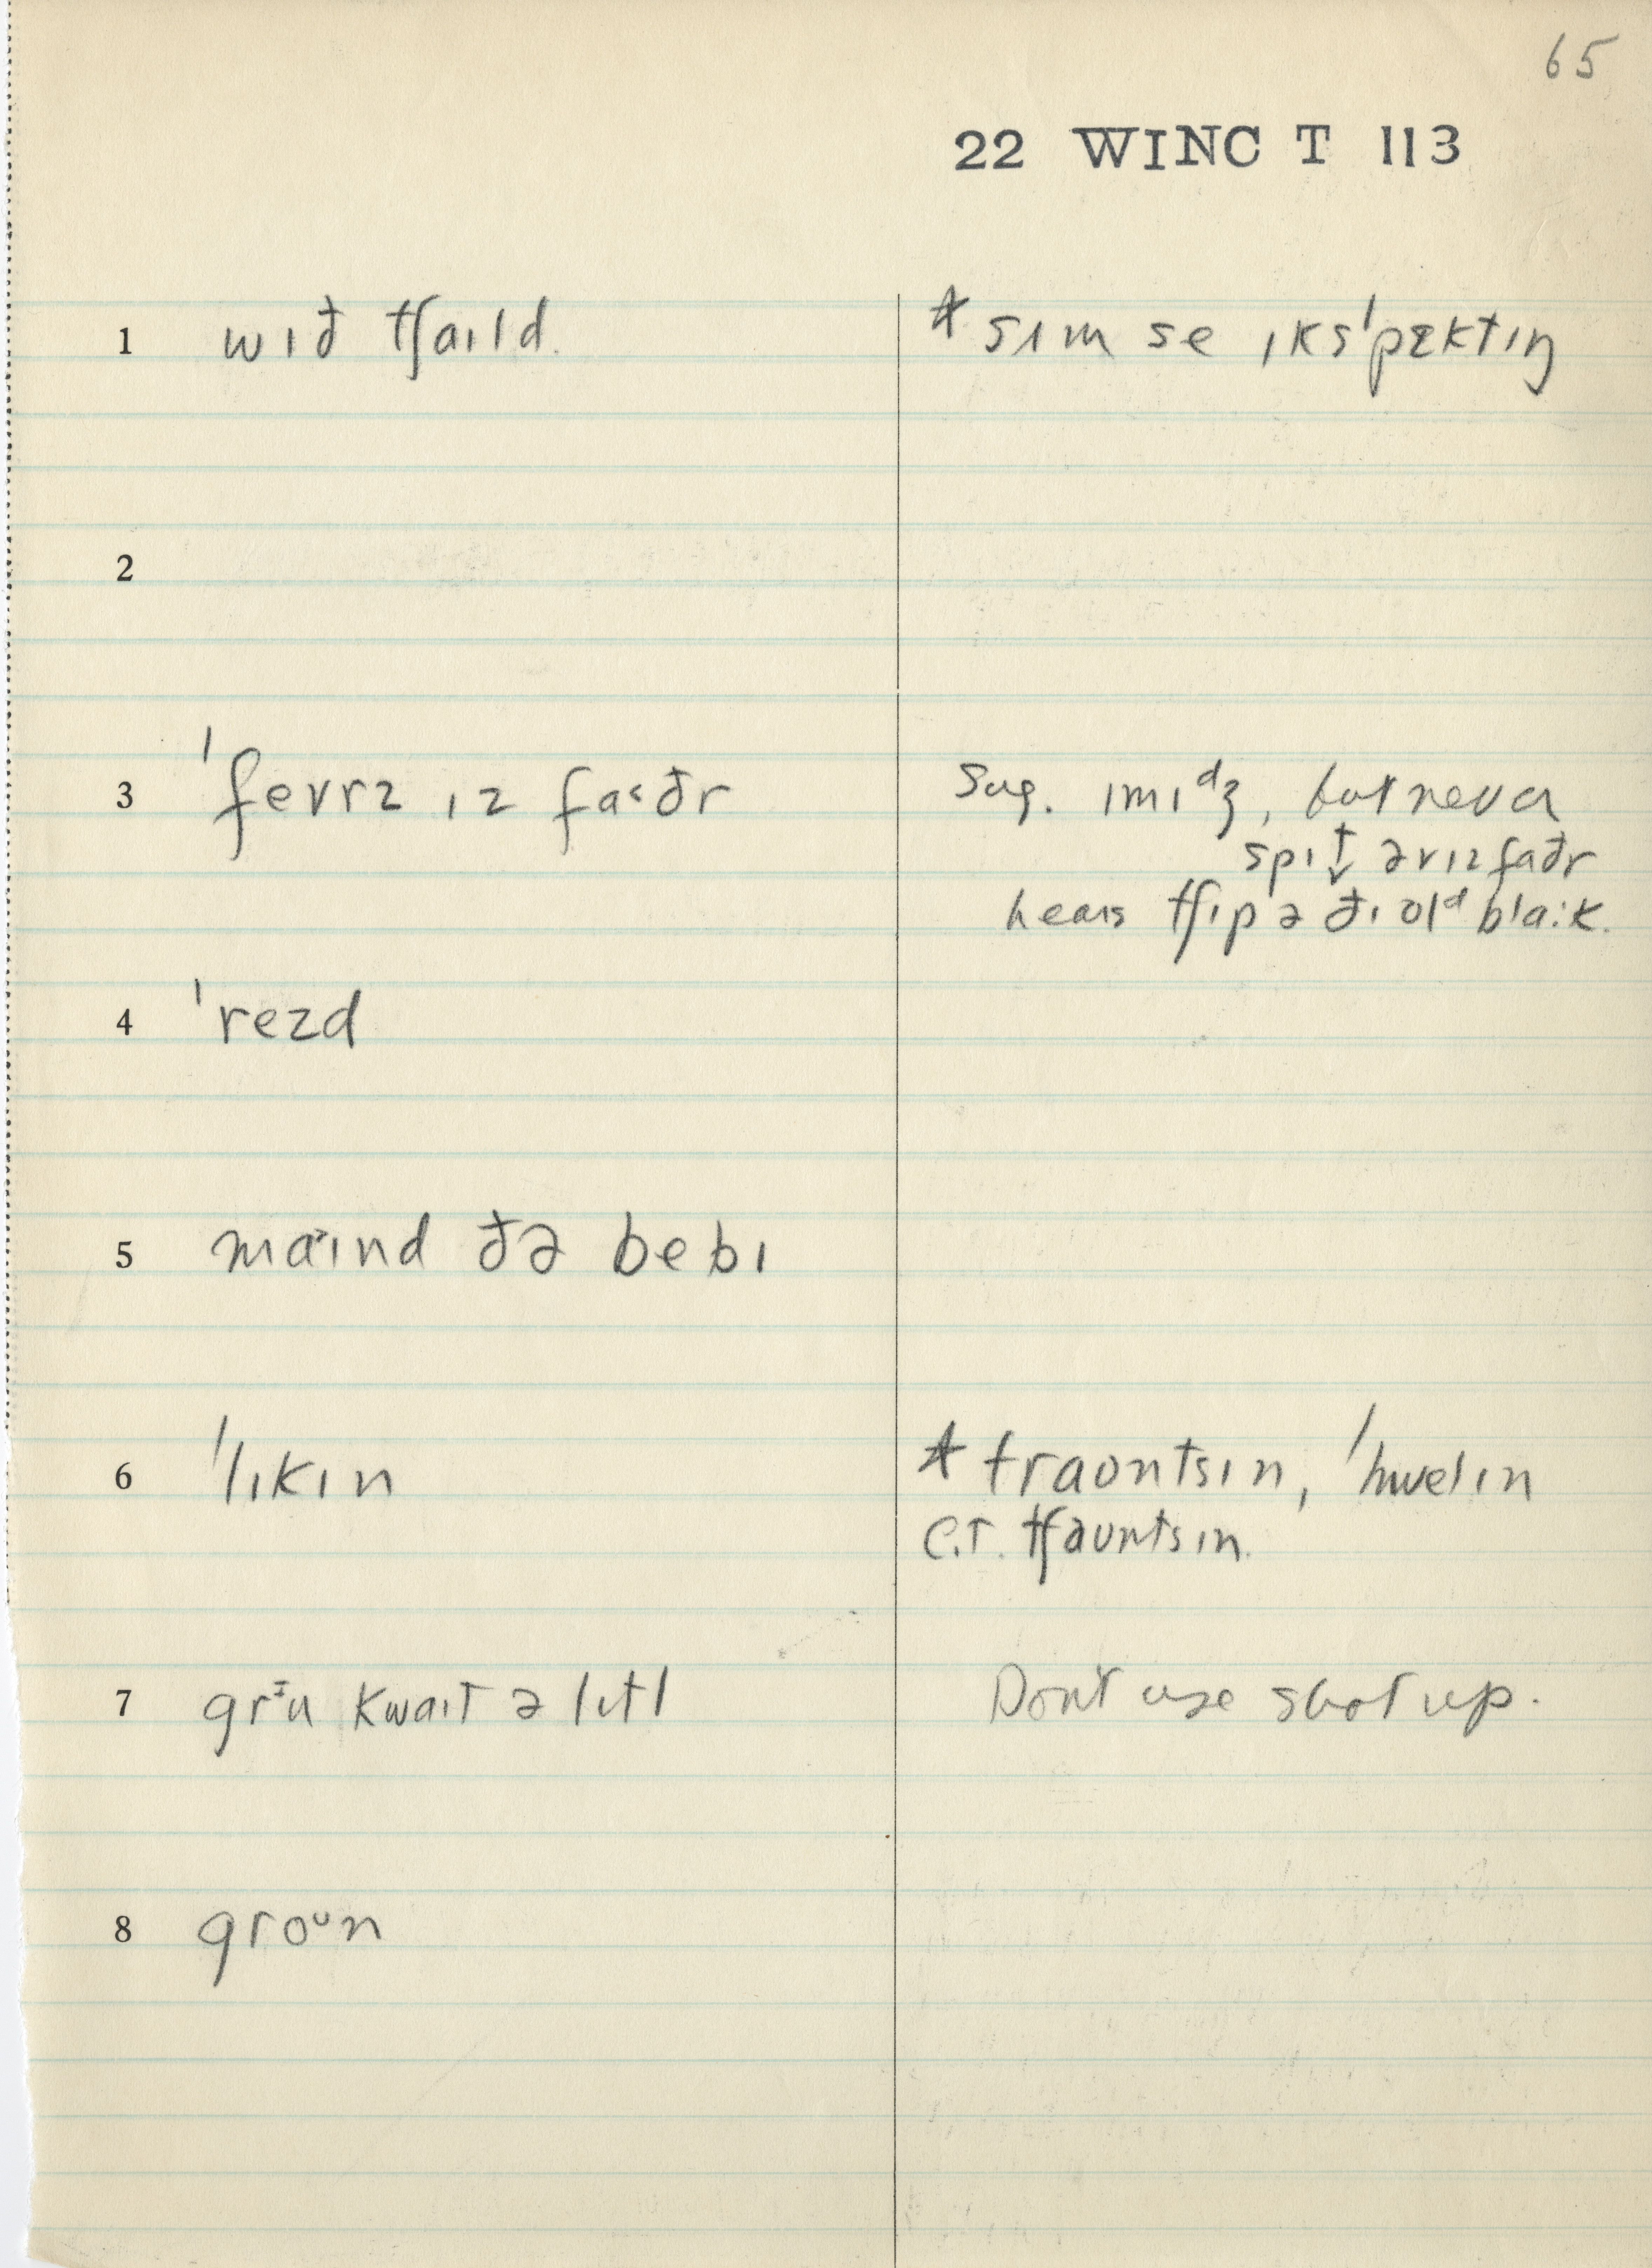 65
22 WINC T 113
1 wɪð tʃaɪld. ⁎ sɪm se ɪks'pɛktɪŋ
2
3 'fevrz ɪz fa˂ðr Sug. ɪmɪᵈʒ, but never
spɪt̬ əvɪz faðr
hears tʃɪp ə ðɪ olᵈ bla:k.
4 'rezd
5 maˑɪnd ðə bebɪ
6 'lɪkɪn ⁎ traontsɪn, 'hwelɪn
C.T. tʃauntsɪn.
7 grᵻu kwaɪt ə lɪtl Don't use shot up.
8 groᵘn